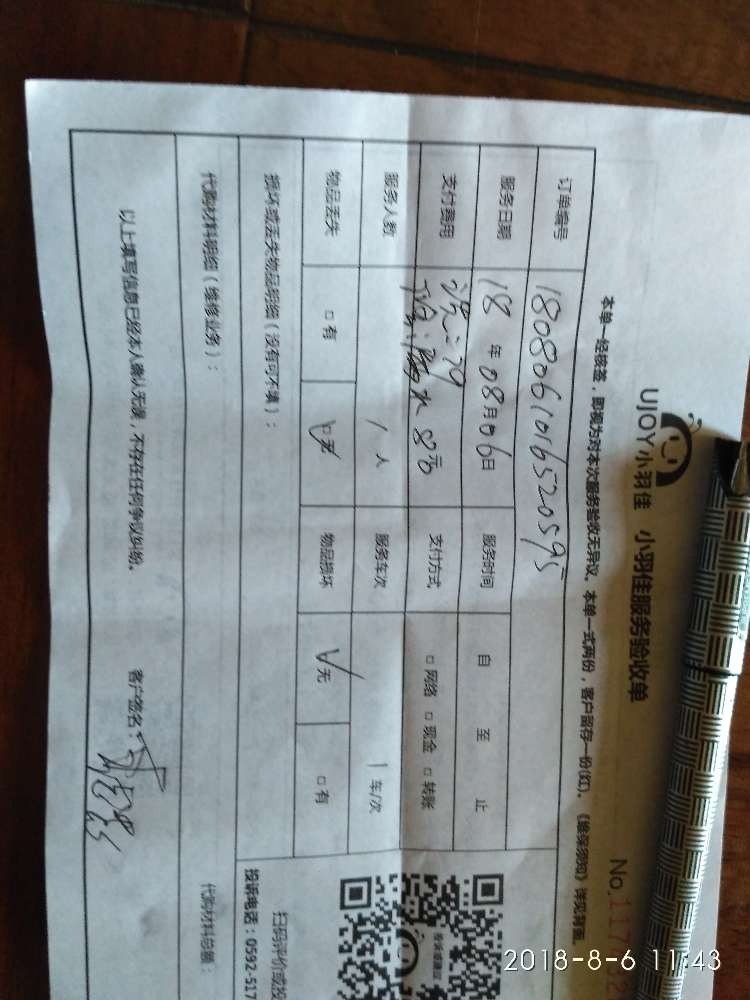 UJOY小羽佳 小羽佳服务验收单
No.117
本单一经核签，即视为对本次服务验收无异议。本单一式两份，客户留存一份(红)。《维保须知》详见背面。
订单编号 1808061016520595
服务日期 18年08月06日 服务时间 自 至 止
支付费用 洗:79 水8元 支付方式 □网络 □现金 □转账
服务人数 1人 服务车次 1车/次
物品丢失 □有 □无 物品损坏 □无 □有
损坏或丢失物品明细（没有可不填）：
代购材料明细（维修业务）： 代购材料总额：
以上填写信息已经本人确认无误，不存在任何争议纠纷。 客户签名：
扫码评价或投
投诉电话：0592-517
2018-8-6 11:43